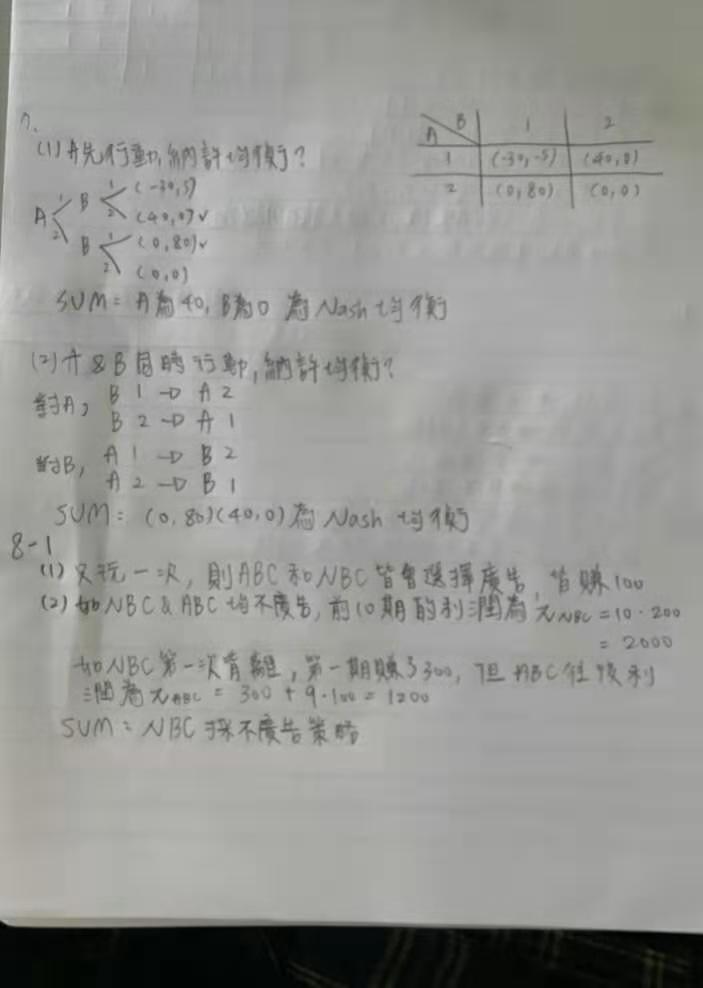 7.
(1) A先行動,納許均衡?
A B 1 2
1 (-30,-5) (40,0)
2 (0,80) (0,0)
A 1 B 1 (-30,5)
2 (40,0)✓
2 B 1 (0,80)✓
2 (0,0)
SUM = A為40, B為0 為Nash均衡
(2) A & B 同時行動,納許均衡?
對A, B 1 → A 2
B 2 → A 1
對B, A 1 → B 2
A 2 → B 1
SUM: (0,80)(40,0)為Nash均衡
8-1
(1) 只玩一次, 則ABC和NBC皆會選擇廣告, 皆賺100
(2) 如NBC & ABC均不廣告, 前10期的利潤為 πNBC = 10·200
= 2000
如NBC第一次背離, 第一期賺了300, 但ABC往後利
潤為πABC = 300 + 9·100 = 1200
SUM: NBC採不廣告策略